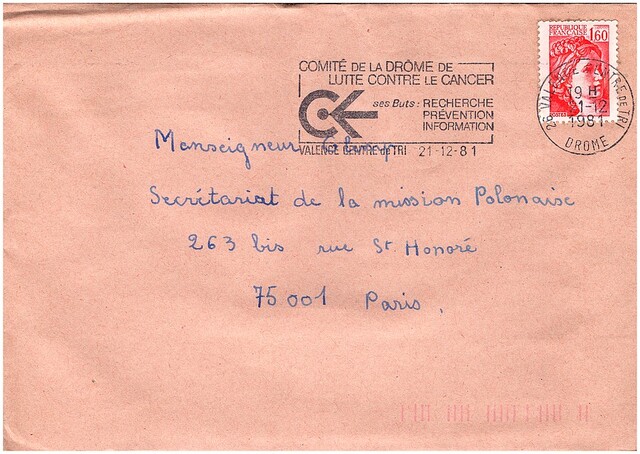 REPUBLIQUE
FRANÇAISE 1,60
COMITÉ DE LA DRÔME DE
LUTTE CONTRE LE CANCER
ses Buts : RECHERCHE
PRÉVENTION
INFORMATION
VALENCE CENTRE de TRI 21-12-81
26 VALENCE CENTRE DE TRI
19 H
1-12
1981
DROME
POSTES
Monseigneur
Secrétariat de la mission Polonaise
263 bis rue St Honoré
75001 Paris.